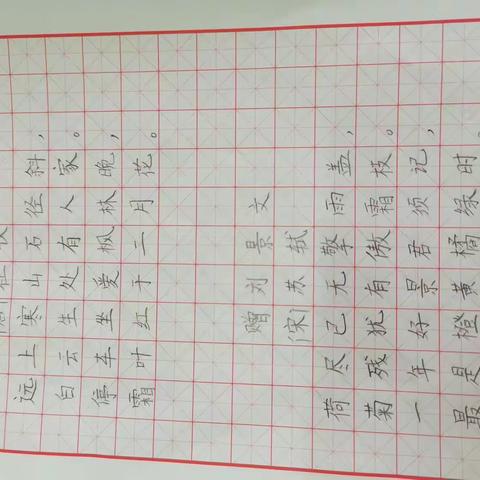 远上寒山石径斜，
白云生处有人家。
停车坐爱枫林晚，
霜叶红于二月花。
赠刘景文
[宋]苏轼
荷尽已无擎雨盖，
菊残犹有傲霜枝。
一年好景君须记，
最是橙黄橘绿时。